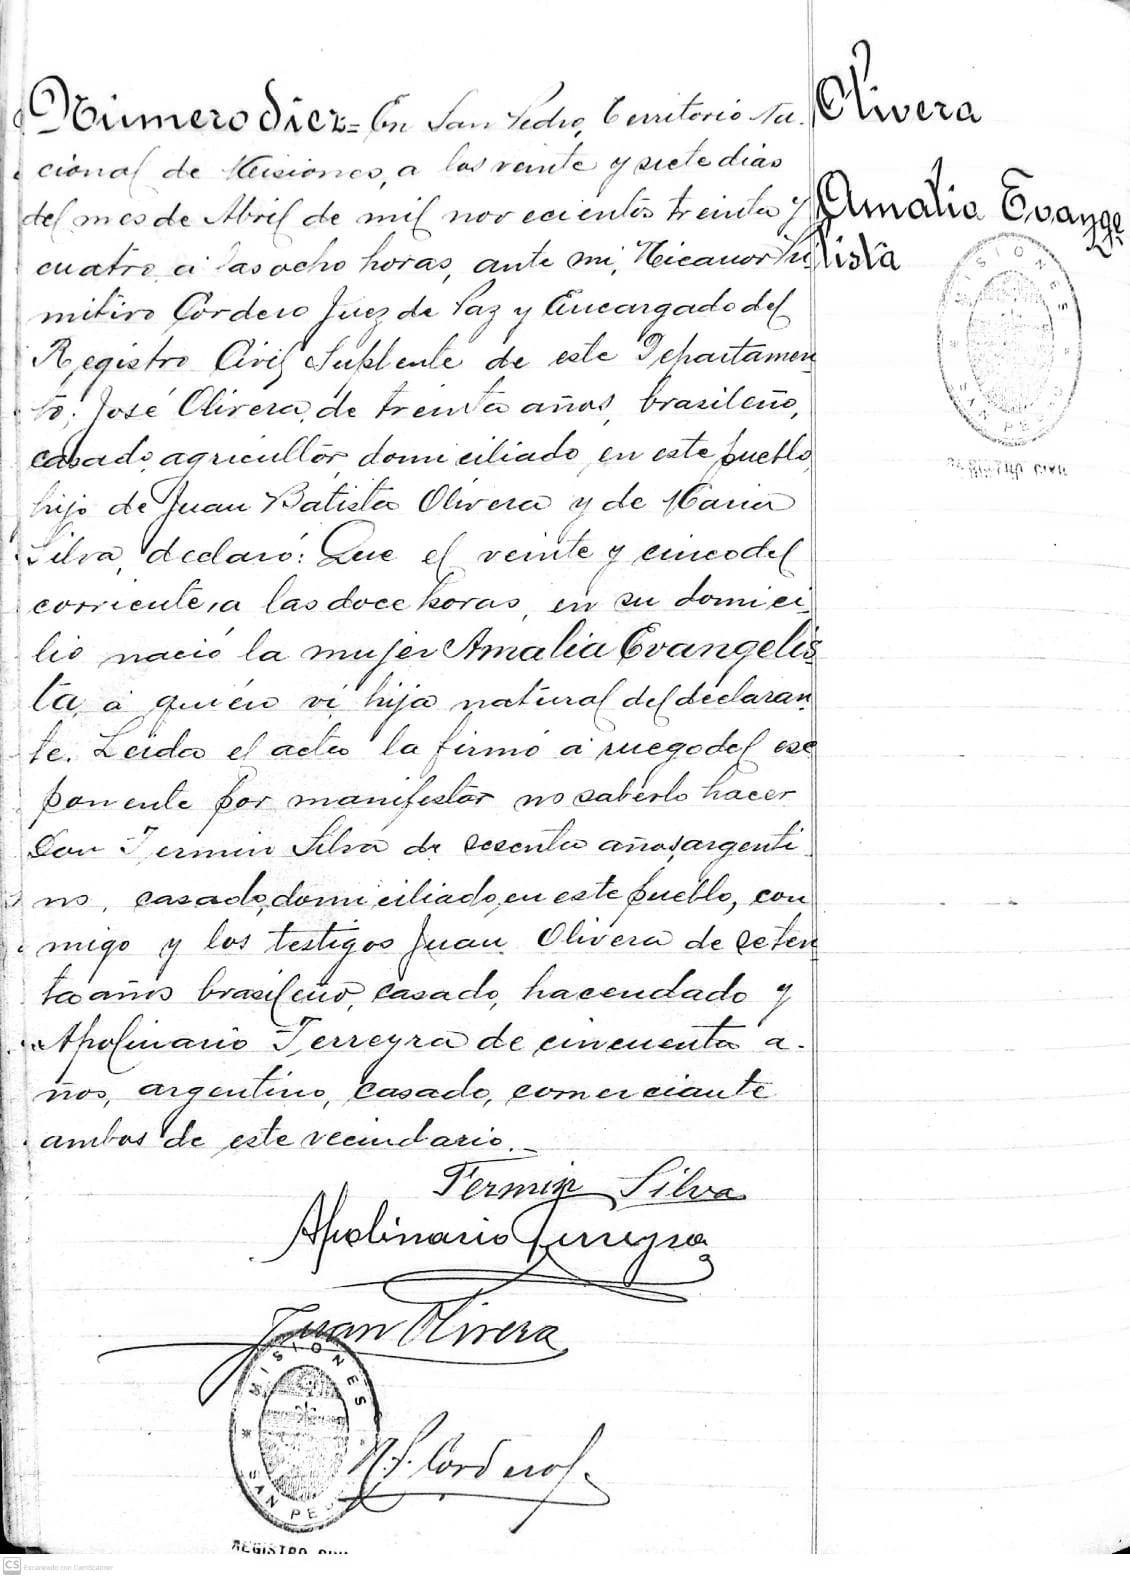 Número diez = En San Pedro, Territorio Na-
cional de Misiones, a los veinte y siete dias
del mes de Abril de mil novecientos treinta y
cuatro, a las ocho horas, ante mi, Nicanor
Cordero Juez de Paz y Encargado del
Registro Civil Suplente de este Departamen
to; José Olivera, de treinta años, brasileño,
casado, agricultor, domiciliado en este pueblo,
hijo de Juan Batista Olivera y de Maria
Silva, declaró: Que el veinte y cinco del
corriente, a las doce horas, en su domici-
lio nació la mujer Amalia Evangelis
ta, á quién vi, hija natural del declaran
te. Leida el acta la firmó a ruego del ex
ponente por manifestar no saberlo hacer
Don Fermin Silva de sesenta años, argenti
no, casado, domiciliado en este pueblo, con
migo y los testigos Juan Olivera de seten
ta años brasileño, casado, hacendado y
Apolinario Ferreyra de cincuenta a-
ños, argentino, casado, comerciante
ambos de este vecindario.
Fermin Silva
Apolinario Ferreyra
Juan Olivera
Olivera
Amalia Evange
lista
MISIONES
SAN PEDRO
REGISTRO CIVIL
MISIONES
SAN PE
REGISTRO CIVIL
CS Escaneado con CamScanner